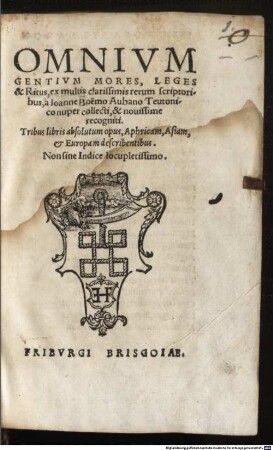 OMNIVM
GENTIVM MORES, LEGES
& Ritus, ex multis clarissimis rerum scriptori-
bus, à Ioanne Boëmo Aubano Teutoni-
co nuper collecti, & nouissime
recogniti.
Tribus libris absolutum opus, Aphricam, Asiam,
& Europam describentibus.
Non sine Indice locupletissimo.
FRIBVRGI BRISGOIAE.